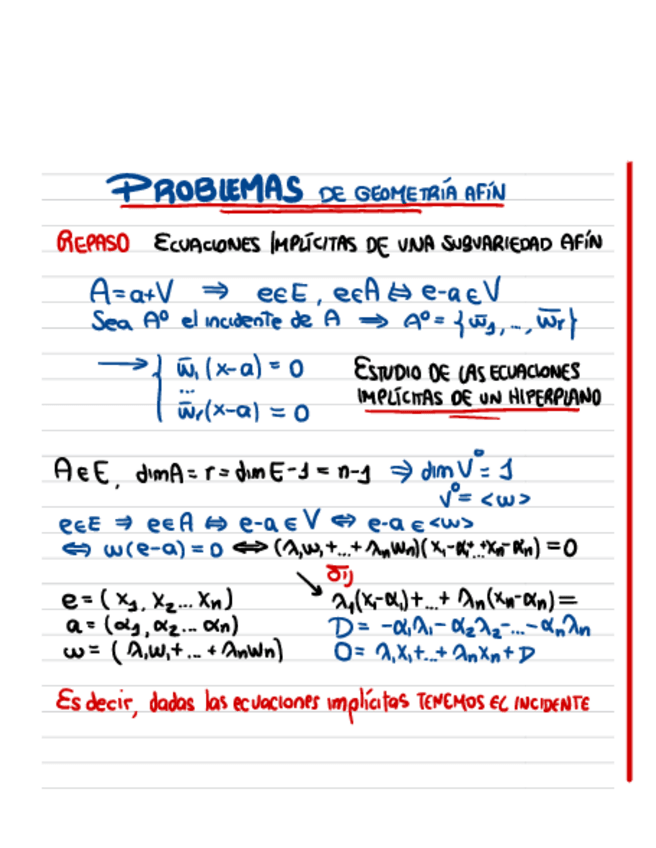 PROBLEMAS DE GEOMETRÍA AFÍN
REPASO ECUACIONES IMPLÍCITAS DE UNA SUBVARIEDAD AFÍN
A=a+V ⇒ e∈E, e∈A ⇔ e-a∈V
Sea A⁰ el incidente de A ⇒ A⁰ = {w̄₁, ..., w̄r}
→ { w̄₁(x-a) = 0
...
w̄r(x-a) = 0
ESTUDIO DE LAS ECUACIONES
IMPLÍCITAS DE UN HIPERPLANO
A∈E, dimA = r = dim E-1 = n-1 ⇒ dim V⁰ = 1
V⁰ = <w>
e∈E ⇒ e∈A ⇔ e-a∈V ⇔ e-a∈<w>
⇔ w(e-a) = 0 ⇔ (λ₁w₁+...+λnwn)(x₁-α₁+...+xn-αn) = 0
δij
e = (x₁, x₂... xn)
a = (α₁, α₂... αn)
w = (λ₁w₁+...+λnwn)
λ₁(x₁-α₁)+...+λn(xn-αn) =
D = -α₁λ₁-α₂λ₂-...-αnλn
0 = λ₁x₁+...+λnxn+D
Es decir, dadas las ecuaciones implícitas TENEMOS EL INCIDENTE